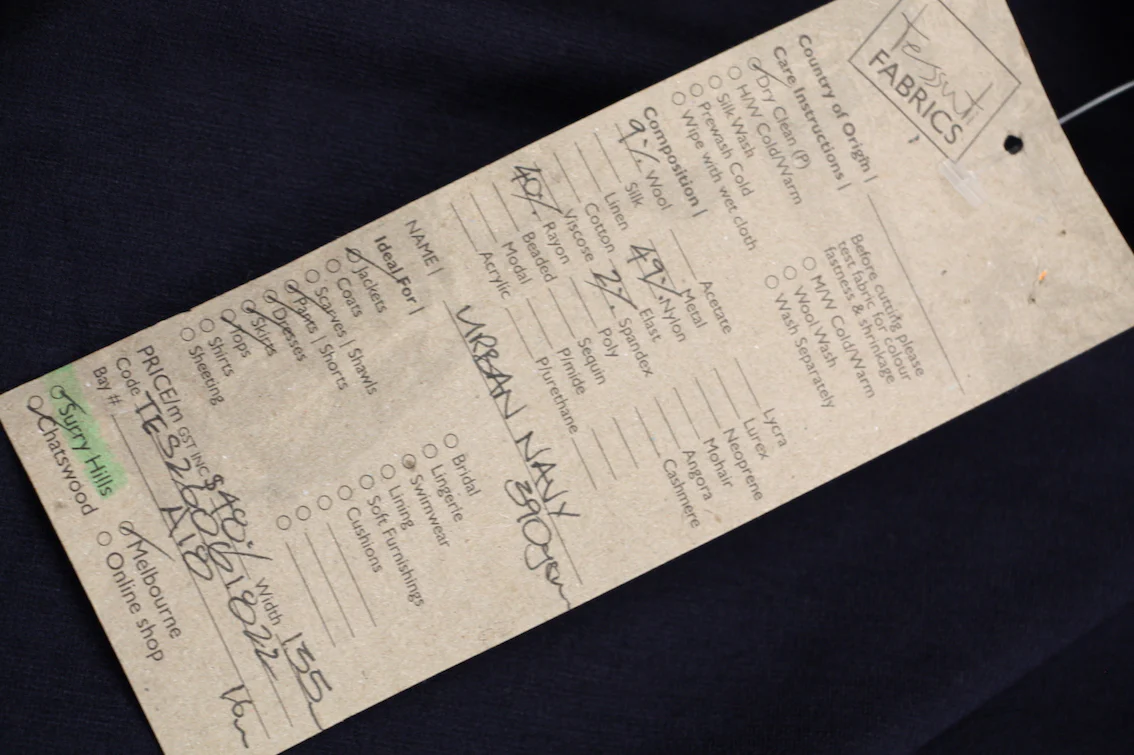 tessuti
FABRICS
Country of Origin |
Care Instructions |
Dry Clean (P)
H/W Cold/Warm
Silk Wash
Prewash Cold
Wipe with wet cloth
Before cutting please
test fabric for colour
fastness & shrinkage
M/W Cold/Warm
Wool Wash
Wash Separately
Composition |
9% Wool
Silk
Linen
Cotton
Viscose
40% Rayon
Beaded
Modal
Acrylic
Acetate
Metal
49% Nylon
Elast
2% Spandex
Poly
Sequin
P/mide
P/urethane
Lycra
Lurex
Neoprene
Mohair
Angora
Cashmere
NAME | URBAN NAVY
390gsm
Ideal For |
Jackets
Coats
Scarves | Shawls
Pants | Shorts
Dresses
Skirts
Tops
Shirts
Sheeting
Bridal
Lingerie
Swimwear
Lining
Soft Furnishings
Cushions
PRICE/m GST INC $49% Width 155
Code TES260618022
Bay #: A18
Surry Hills
Chatswood
Melbourne
Online shop